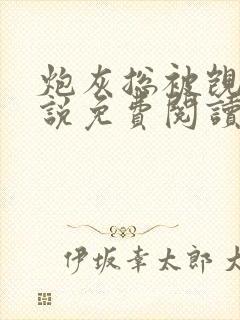 炮灰总被覬
說免費閱讀
伊坂幸太郎 大